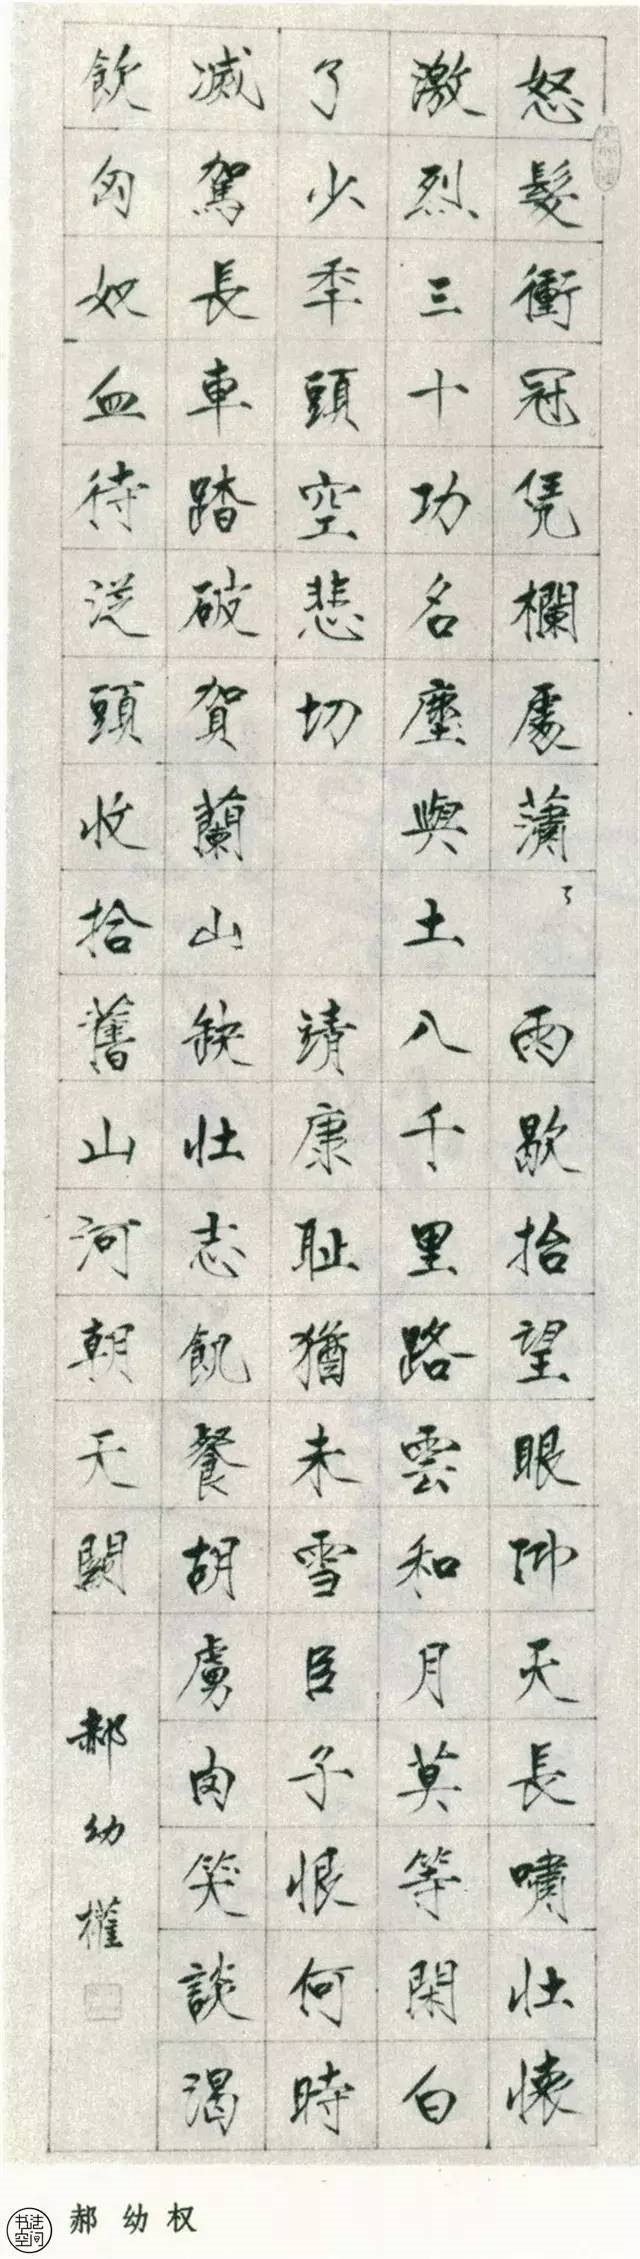 怒髮衝冠凭欄處蕭〻雨歇抬望眼仰天長嘯壮懐
激烈三十功名塵與土八千里路雲和月莫等閑白
了少秊頭空悲切靖康耻猶未雪臣子恨何時
滅駕長車踏破賀蘭山缺壮志飢餐胡虜肉笑談渴
飲匈奴血待從頭收拾舊山河朝天闕
郝幼權
郝幼权
书法空间